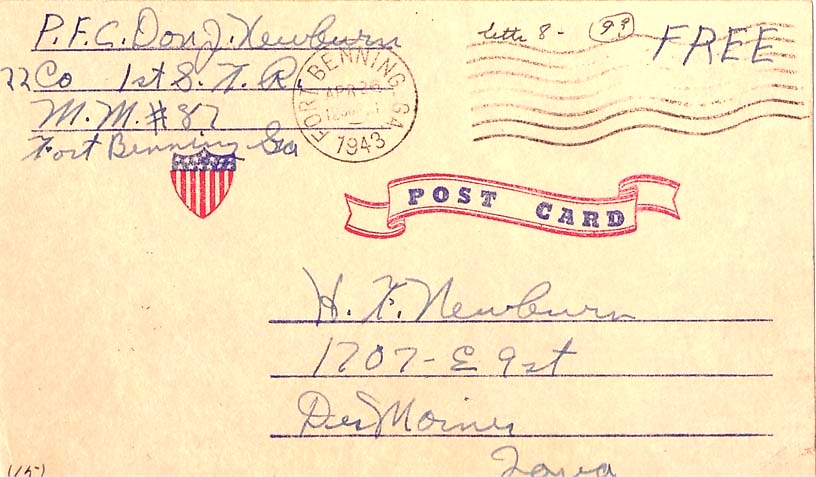 P.F.C. Don J. Newburn
22 Co 1st S. T. R.
M.M. #87
Fort Benning Ga
FORT BENNING, GA
APR 26
1943
letter 8 - 9?
FREE
POST CARD
H. F. Newburn
1707 - E 9st
Des Moines
Iowa
(15)